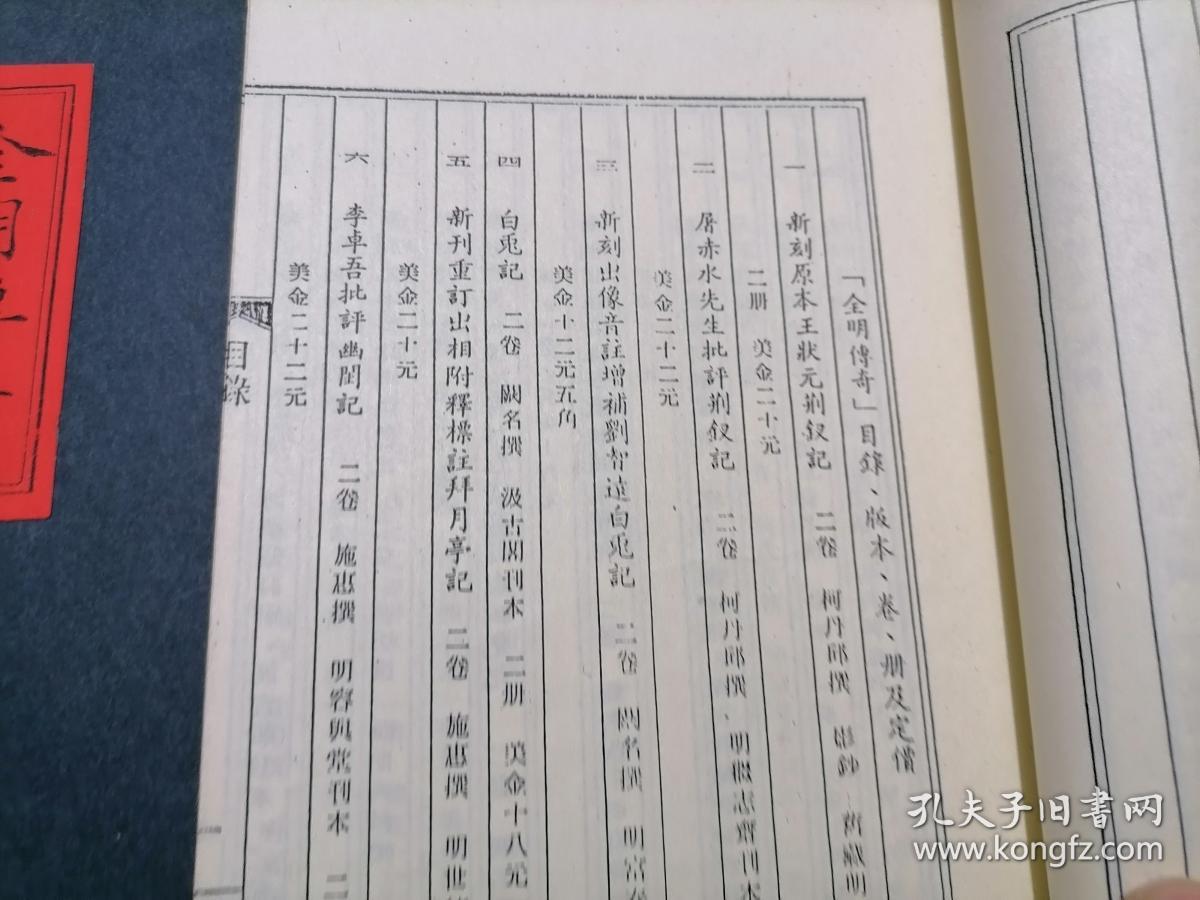 「全明傳奇」目錄、版本、卷、册及定價
一 新刻原本王狀元荆釵記 二卷 柯丹邱撰 影鈔 舊藏明
二册 美金二十元
二 屠赤水先生批評荆釵記 二卷 柯丹邱撰 明繼志齋刊本
美金二十二元
三 新刻出像音註增補劉智遠白兎記 二卷 闕名撰 明富春
美金十二元五角
四 白兎記 二卷 闕名撰 汲古閣刊本 二册 美金十八元
五 新刊重訂出相附釋標註拜月亭記 二卷 施惠撰 明世
美金二十元
六 李卓吾批評幽閨記 二卷 施惠撰 明容與堂刊本 二
美金二十二元
目錄
全明
孔夫子旧书网
www.kongfz.com